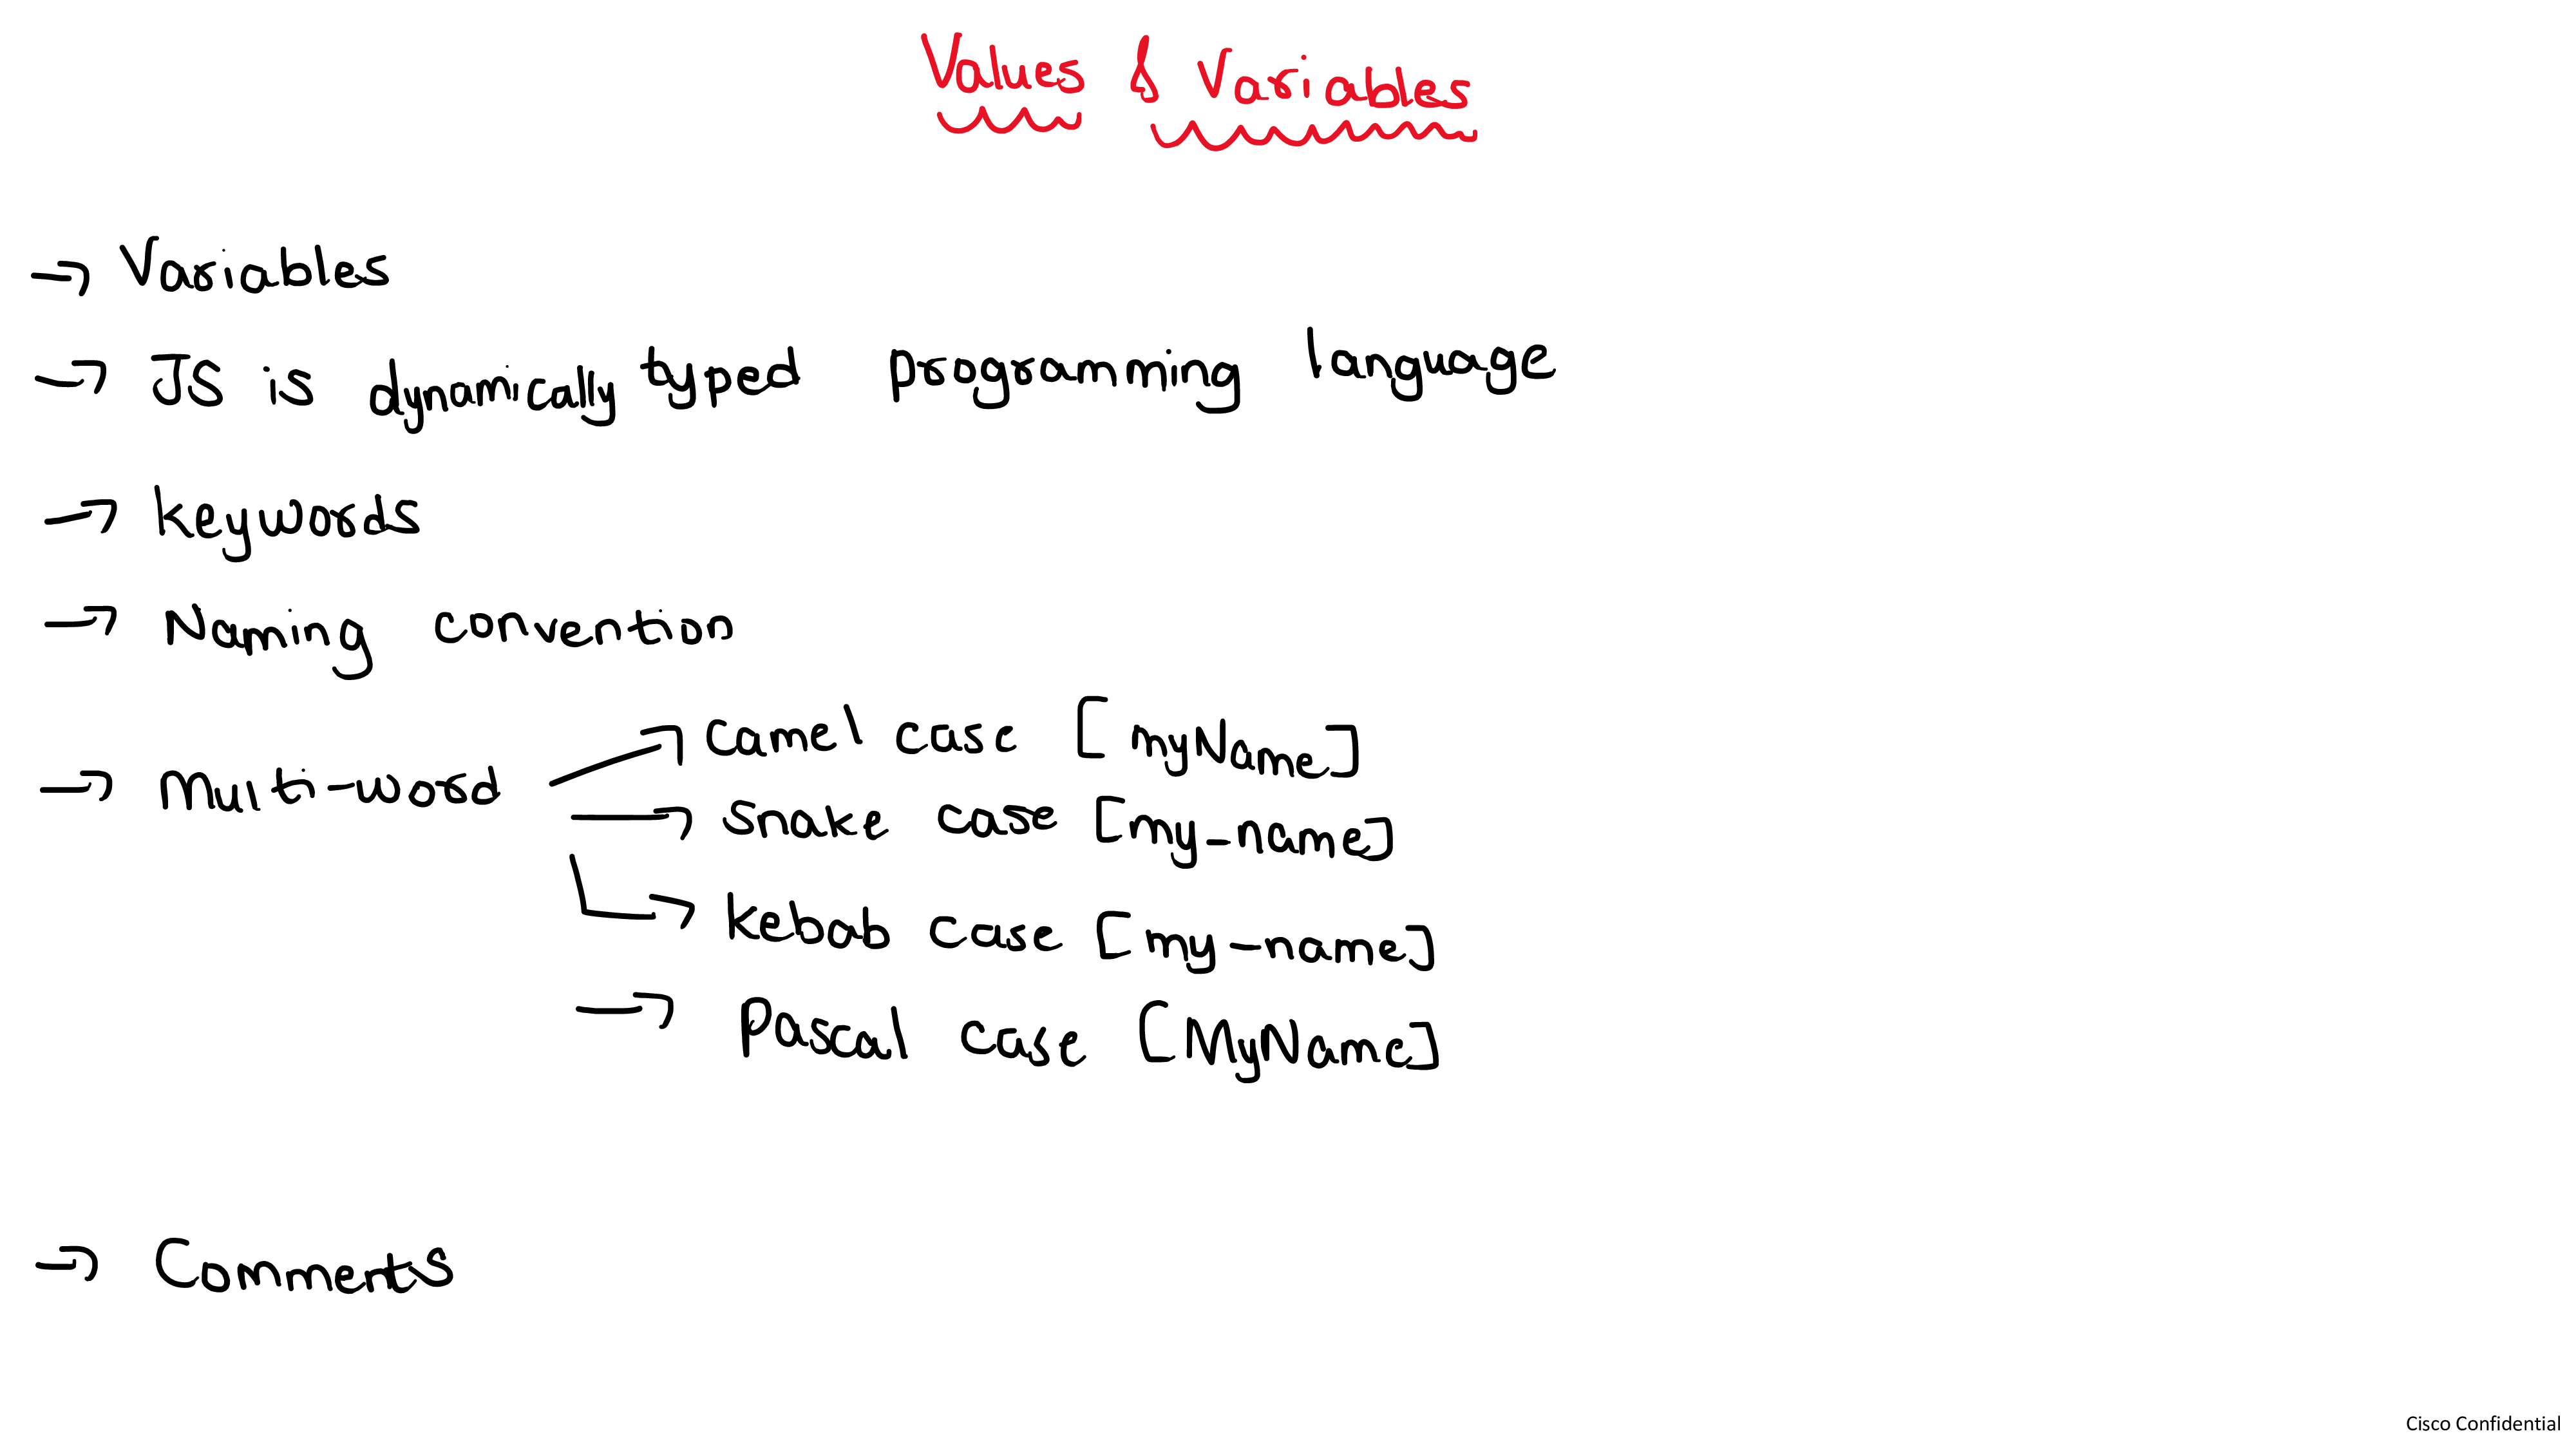 Values & Variables
→ Variables
→ JS is dynamically typed programming language
→ keywords
→ Naming convention
→ Multi-word → camel case [myName]
→ snake case [my_name]
→ kebab case [my-name]
→ Pascal case [MyName]
→ Comments
Cisco Confidential